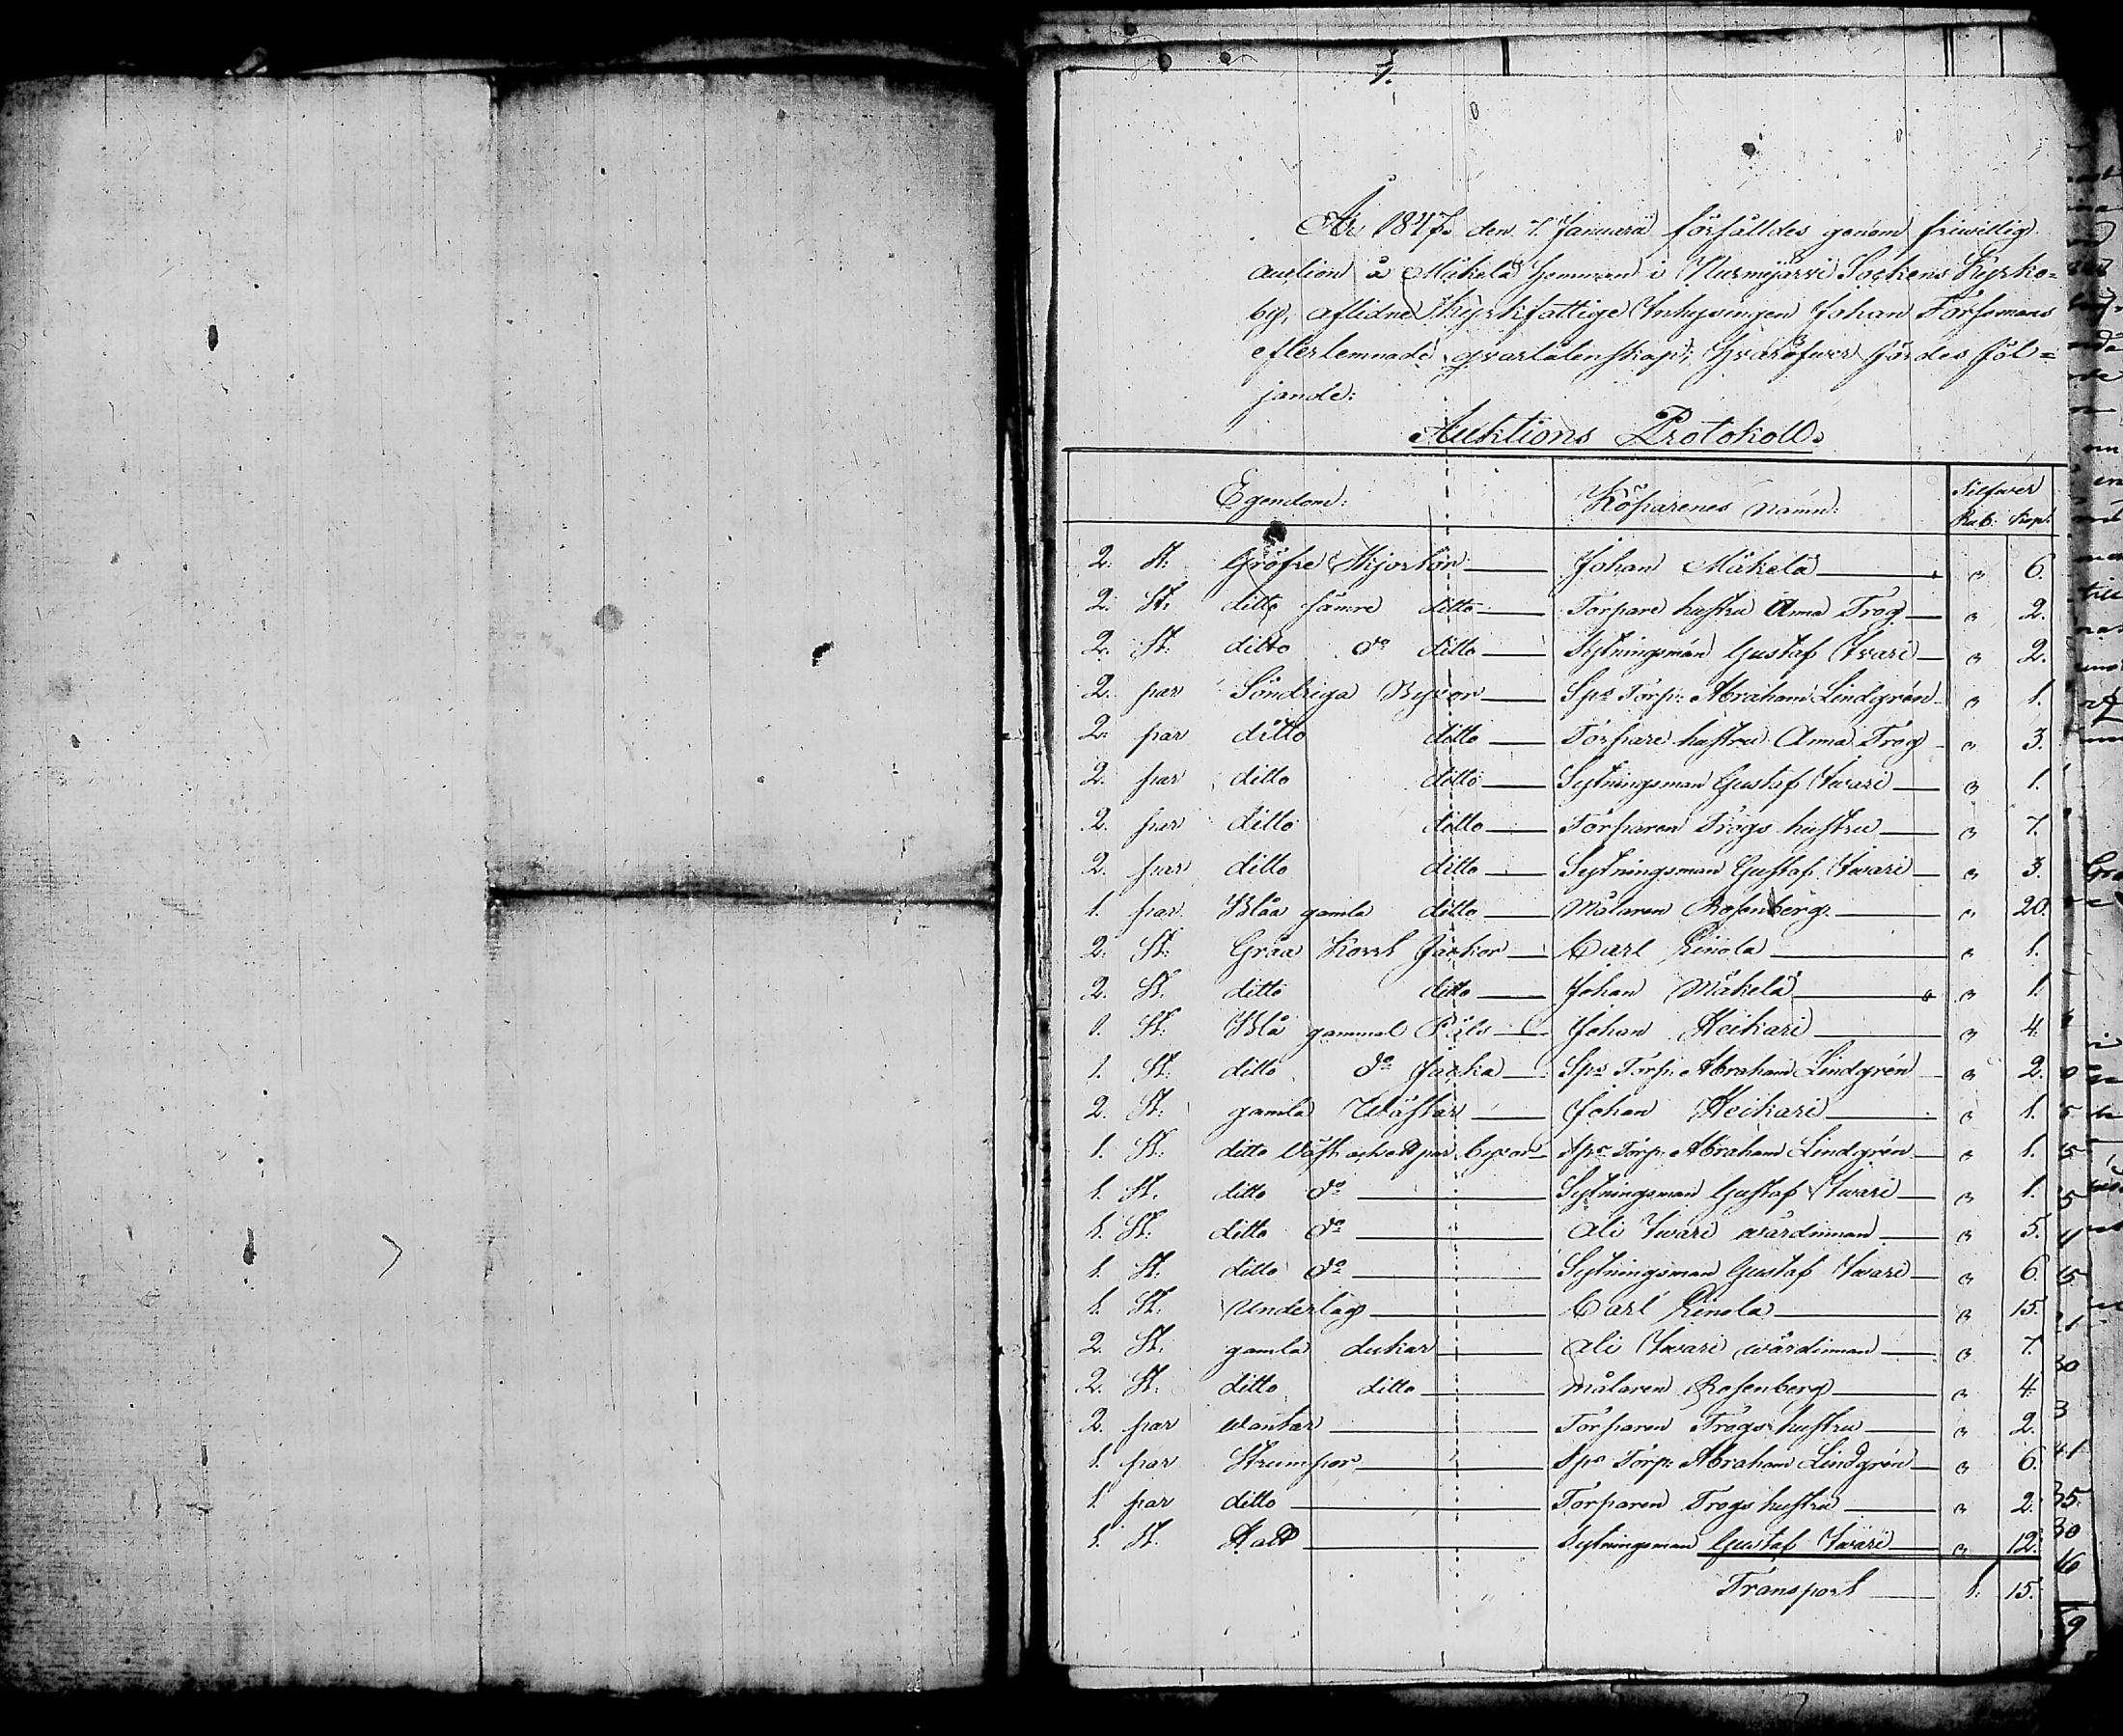 1.
År 1847. den 7. Januari försålldes genom friwillig
auction å Mäkelä hemman i Nurmijärvi Sockens Kyrko=
by, aflidne Kyrkfattige Inhysingen Johan Forsmans
efterlemnade qvarlåtenskap; hvaröfwer fördes föl=
jande:
Auktions Protokoll.
Egendom: Köparenes namn: Silfwer
Rub: Kop:
2. St. Gröfre Skjortor Johan Mäkelä " 6.
2. St. ditto sämre ditto Torpare hustru Anna Trog " 2.
2. St. ditto do ditto Sytningsman Gustaf Iwari " 2.
2. par Söndriga Byxor Sps Torp: Abraham Lindgrén " 1.
2. par ditto ditto Torpare hustru Anna Trog " 3.
2. par ditto ditto Sytningsman Gustaf Iwari " 1.
2. par ditto ditto Torparen Trogs hustru " 7.
2. par ditto ditto Sytningsman Gustaf Iwari " 3.
1. par Blåa gamla ditto Målaren Rosenberg " 20.
2. St. Gråa Kort Jackor Carl " 1.
2. St. ditto ditto Johan Mäkelä " 1.
1. St. Blå gammal Johan Heikari " 4.
1. St. ditto do Jacka Sps Torp: Abraham Lindgrén " 2.
2. St. gamla Wästar Johan Heikari " 1.
1. St. ditto Wäst och ett par byxor Sps Torp: Abraham Lindgrén " 1.
1. St. ditto do Sytningsman Gustaf Iwari " 1.
1. St. ditto do Ali Iwari wärdinnan " 5.
1. St. ditto do Sytningsman Gustaf Iwari " 6.
1. St. Underlag Carl " 15.
2. St. gamla dukar Ali Iwari wärdinnan " 7.
2. St. ditto ditto Målaren Rosenberg " 4.
2. par wantar Torparen Trogs hustru " 2.
1. par Strumpor Sps Torp: Abraham Lindgrén " 6.
1. par ditto Torparen Trogs hustru " 2.
1. St. Hatt Sytningsman Gustaf Iwari " 12.
Transport 1. 15.